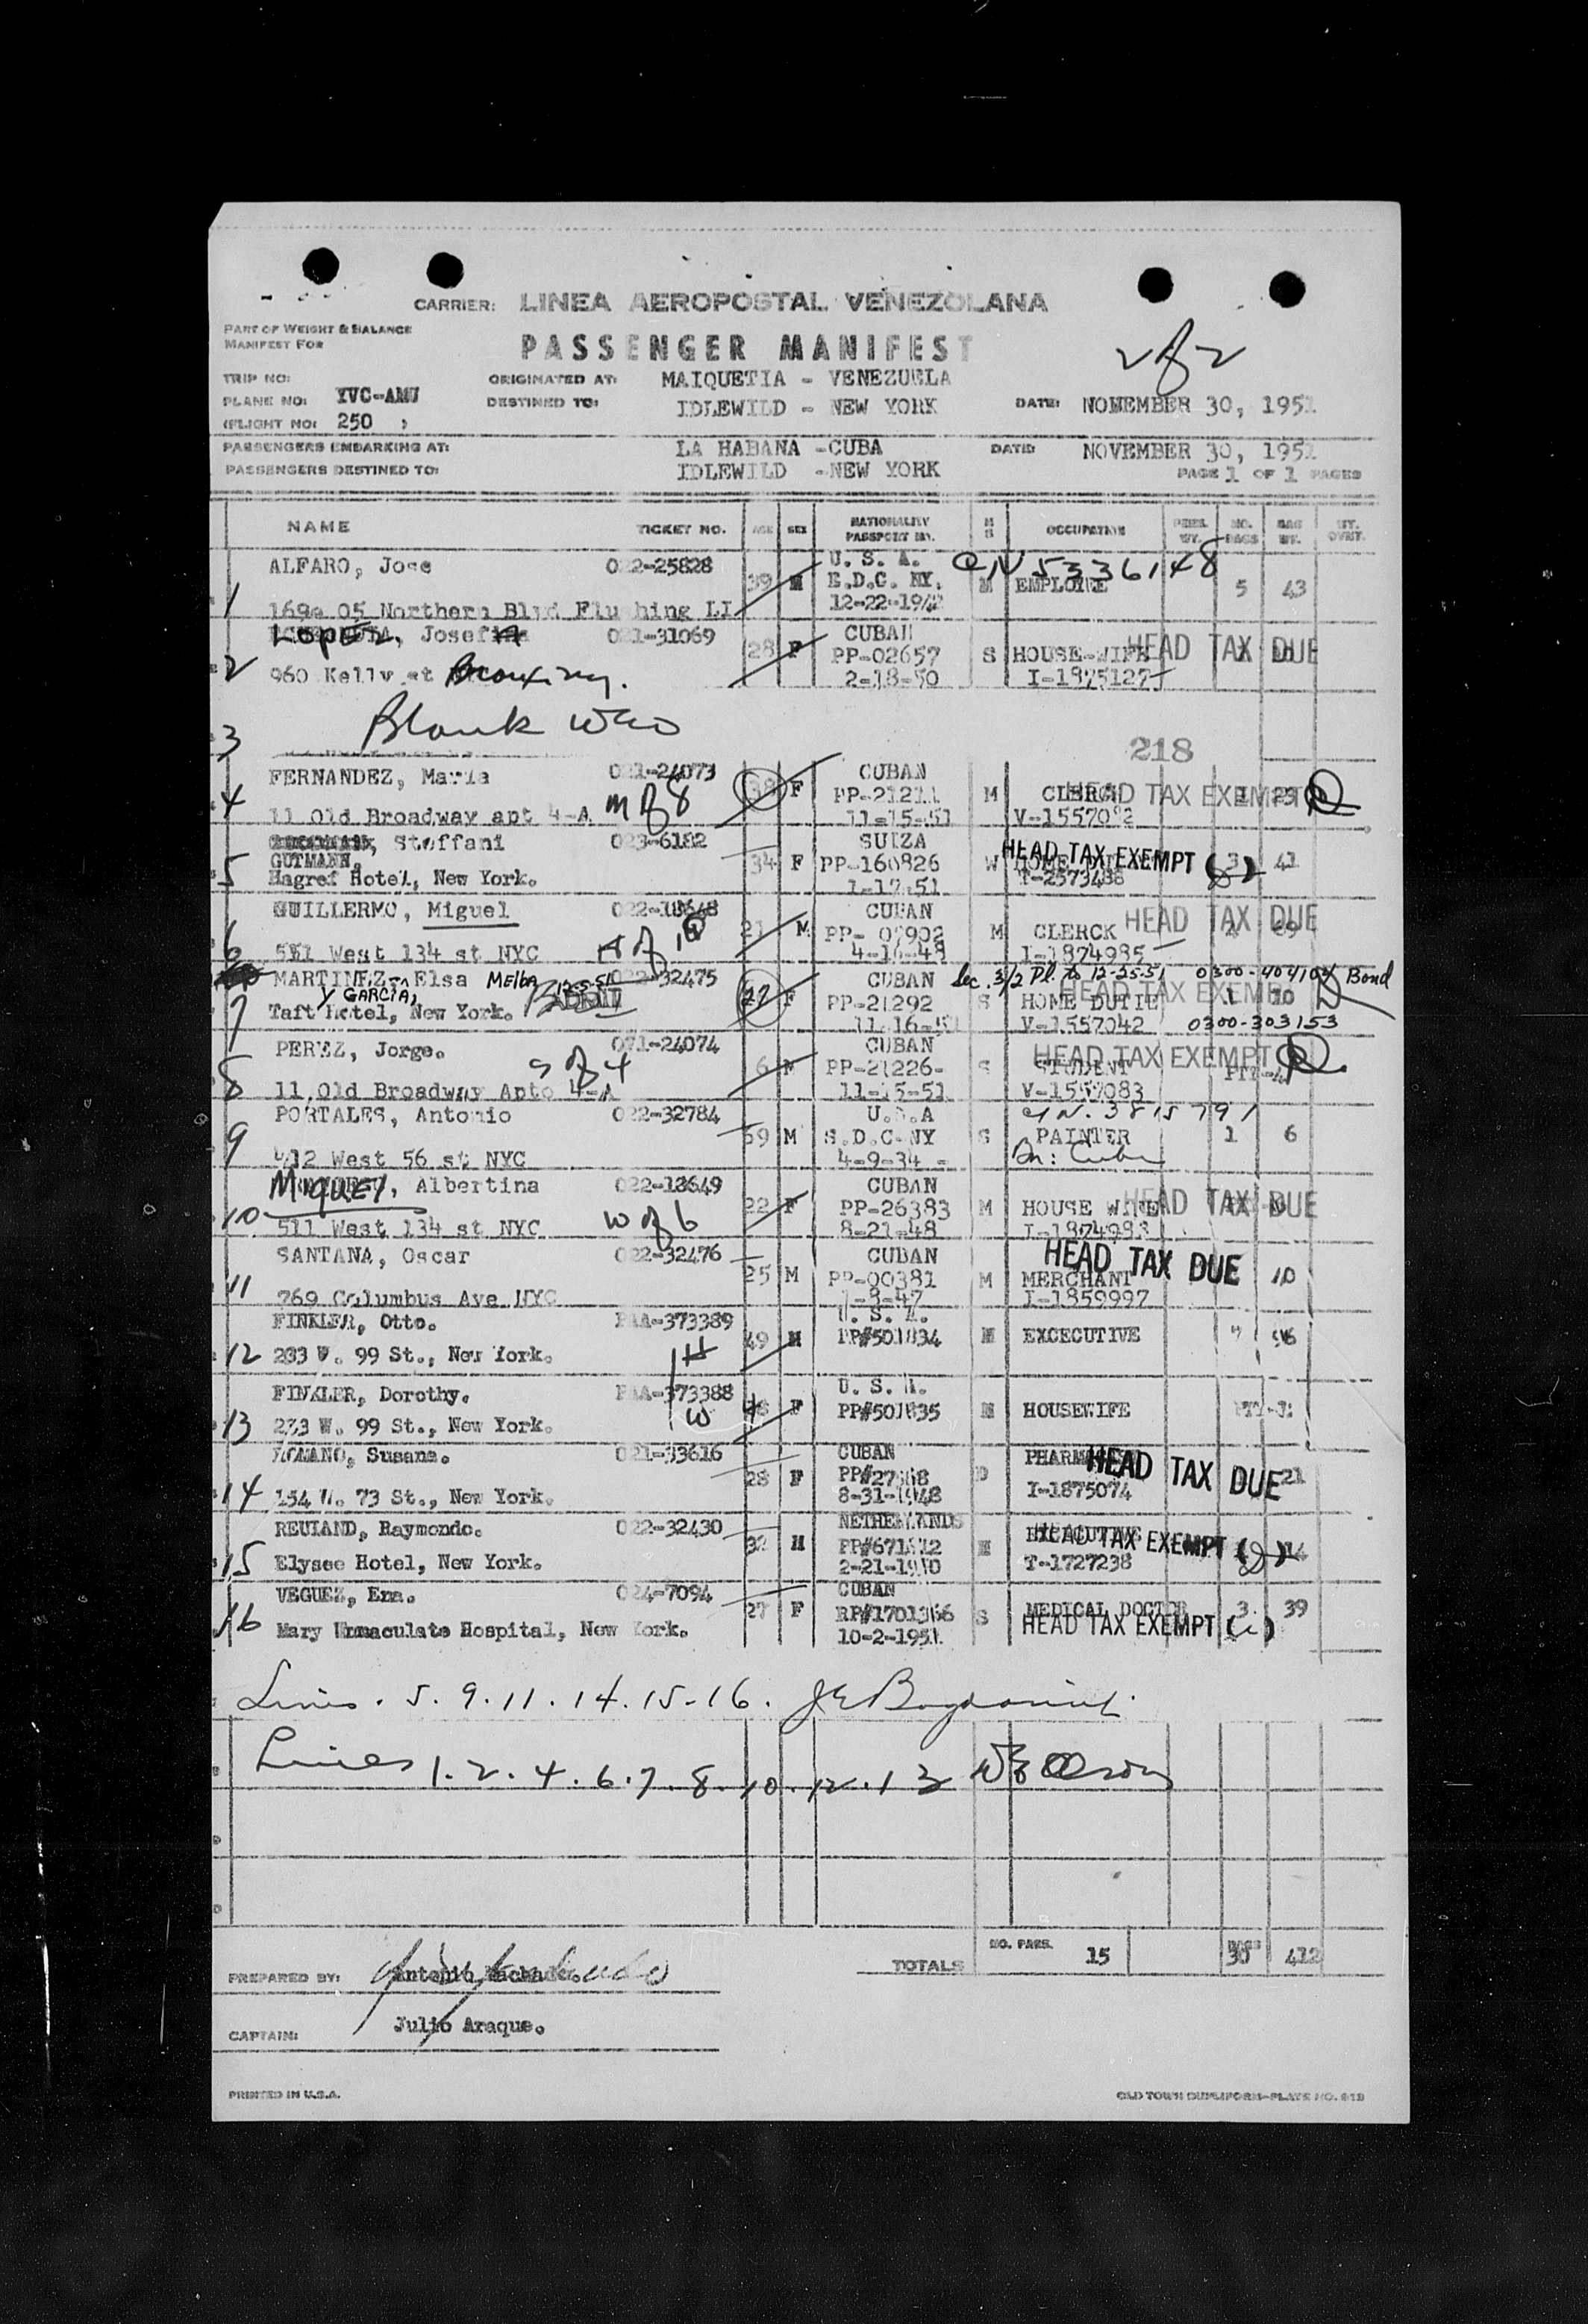 CARRIER: LINEA AEROPOSTAL VENEZOLANA
PART OF WEIGHT & BALANCE
MANIFEST FOR
PASSENGER MANIFEST
2 of 2
TRIP NO:
ORIGINATED AT: MAIQUETIA - VENEZUELA
PLANE NO: YVC-AMU
DESTINED TO: IDLEWILD - NEW YORK
DATE: NOMEMBER 30, 1951
(FLIGHT NO: 250 )
PASSENGERS EMBARKING AT: LA HABANA -CUBA
DATE: NOVEMBER 30, 1951
PASSENGERS DESTINED TO: IDLEWILD -NEW YORK
PAGE 1 OF 1 PAGES
NAME TICKET NO. AGE SEX NATIONALITY PASSPORT NO. M S OCCUPATION NO. BAGS BAG WT.
ALFARO, Jose 022-25828 39 M U. S. A. CN 5336148
1 169- 05 Northern Blvd Flushing LI 12-22-1942 M EMPLOYEE 5 43
LOPEZ, Josefina 021-31069 28 F CUBAN
2 960 Kelly st PP-02657 S HOUSE-WIFE HEAD TAX DUE
2-18-50 I-1875127
3 Blank
218
FERNANDEZ, Maria 021-24073 38 F CUBAN
4 11 Old Broadway apt 4-A M of 8 PP-21211 M HEAD TAX EXEMPT
11-15-51 V-1557082
Steffani 023-6182 34 F SUIZA
GUTMANN, PP-160826 W HEAD TAX EXEMPT (2) 3 41
5 Hagref Hotel, New York. 1-17-51 T-2573488
GUILLERMO, Miguel 022-18648 21 M CUBAN HEAD TAX DUE
6 511 West 134 st NYC H of 10 PP- 07902 M CLERCK
4-10-48 I-1874985
MARTINEZ, Elsa MELBA 022-32475 27 F CUBAN Sec. 3/2 Pl. to 12-25-51 0300-404104 Bond
Y GARCIA, PP-21292 S HOME DUTIE HEAD TAX EXEMPT 1 10
7 Taft Hotel, New York. 11-16-51 V-1557042 0300-303153
PEREZ, Jorge. 021-24074 6 M CUBAN
8 11 Old Broadway Apto 4-A S of 4 PP-21226- S STUDENT HEAD TAX EXEMPT
11-15-51 V-1557083
PORTALES, Antonio 022-32784 59 M U.S.A CN. 3815791
9 412 West 56 st NYC S.D.C-NY S PAINTER 1 6
4-9-34 - Bn: Cuba
MIQUEL, Albertina 022-18649 22 F CUBAN
10 511 West 134 st NYC W of 6 PP-26383 M HOUSE WIFE HEAD TAX DUE
8-21-48 I-1874983
SANTANA, Oscar 022-32476 25 M CUBAN HEAD TAX DUE
PP-00381 M MERCHANT 10
11 769 Columbus Ave NYC -8-47 I-1859997
FINKLER, Otto. PAA-373389 49 M U. S. A.
12 233 W. 99 St., New York. H PP#501834 M EXCECUTIVE
FINKLER, Dorothy. PAA-373388 48 F U. S. A.
13 233 W. 99 St., New York. W PP#501835 M HOUSEWIFE
Susana. 021-33616 28 F CUBAN
PP#27 D HEAD TAX DUE 21
14 154 W. 73 St., New York. 8-31-1948 I-1875074
REULAND, Raymondo. 022-32430 32 M NETHERLANDS
PP#671 M EXECUTIVE HEAD TAX EXEMPT (2) 14
15 Elysee Hotel, New York. 2-21-1950 T-1727238
VEGUEZ, Ema. 024-7094 27 F CUBAN
RP#1701366 S MEDICAL DOCTOR 3 39
16 Mary Immaculate Hospital, New York. 10-2-1951 HEAD TAX EXEMPT
Lines . 5. 9. 11. 14. 15-16.
Lines 1. 2. 4. 6. 7. 8. 10. 12. 13
TOTALS NO. PASS. 15 BAGS 30 412
PREPARED BY: Antonio Machado.
CAPTAIN: Julio Araque.
PRINTED IN U.S.A.
OLD TOWN DUPLIFORM-PLATE NO.